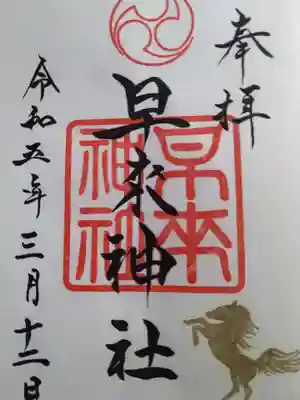 奉拝
早來神社
早來神社
令和五年三月十二日